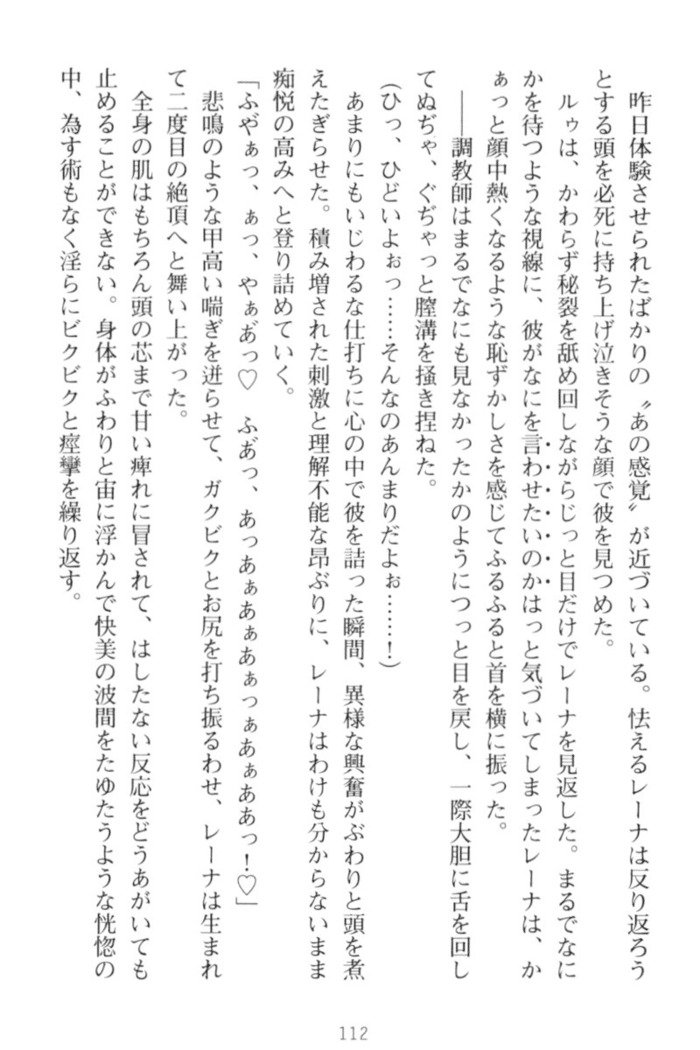 昨日体験させられたばかりの〝あの感覚〟が近づいている。怯えるレーナは反り返ろう
とする頭を必死に持ち上げ泣きそうな顔で彼を見つめた。
ルゥは、かわらず秘裂を舐め回しながらじっと目だけでレーナを見返した。まるでなに
かを待つような視線に、彼がなにを言わせたいのかはっと気づいてしまったレーナは、か
ぁっと顔中熱くなるような恥ずかしさを感じてふるふると首を横に振った。
――調教師はまるでなにも見なかったかのようにつっと目を戻し、一際大胆に舌を回し
てぬぢゃ、ぐぢゃっと膣溝を掻き捏ねた。
(ひっ、ひどいよぉっ……そんなのあんまりだよぉ……！)
あまりにもいじわるな仕打ちに心の中で彼を詰った瞬間、異様な興奮がぶわりと頭を煮
えたぎらせた。積み増された刺激と理解不能な昂ぶりに、レーナはわけも分からないまま
痴悦の高みへと登り詰めていく。
「ふやぁっ、ぁっ、やぁあ゛っ♡　ふあ゛っ、あっあぁあぁあぁっぁあぁああっ！♡」
悲鳴のような甲高い喘ぎを迸らせて、ガクビクとお尻を打ち振るわせ、レーナは生まれ
て二度目の絶頂へと舞い上がった。
全身の肌はもちろん頭の芯まで甘い痺れに冒されて、はしたない反応をどうあがいても
止めることができない。身体がふわりと宙に浮かんで快美の波間をたゆたうような恍惚の
中、為す術もなく淫らにビクビクと痙攣を繰り返す。
112